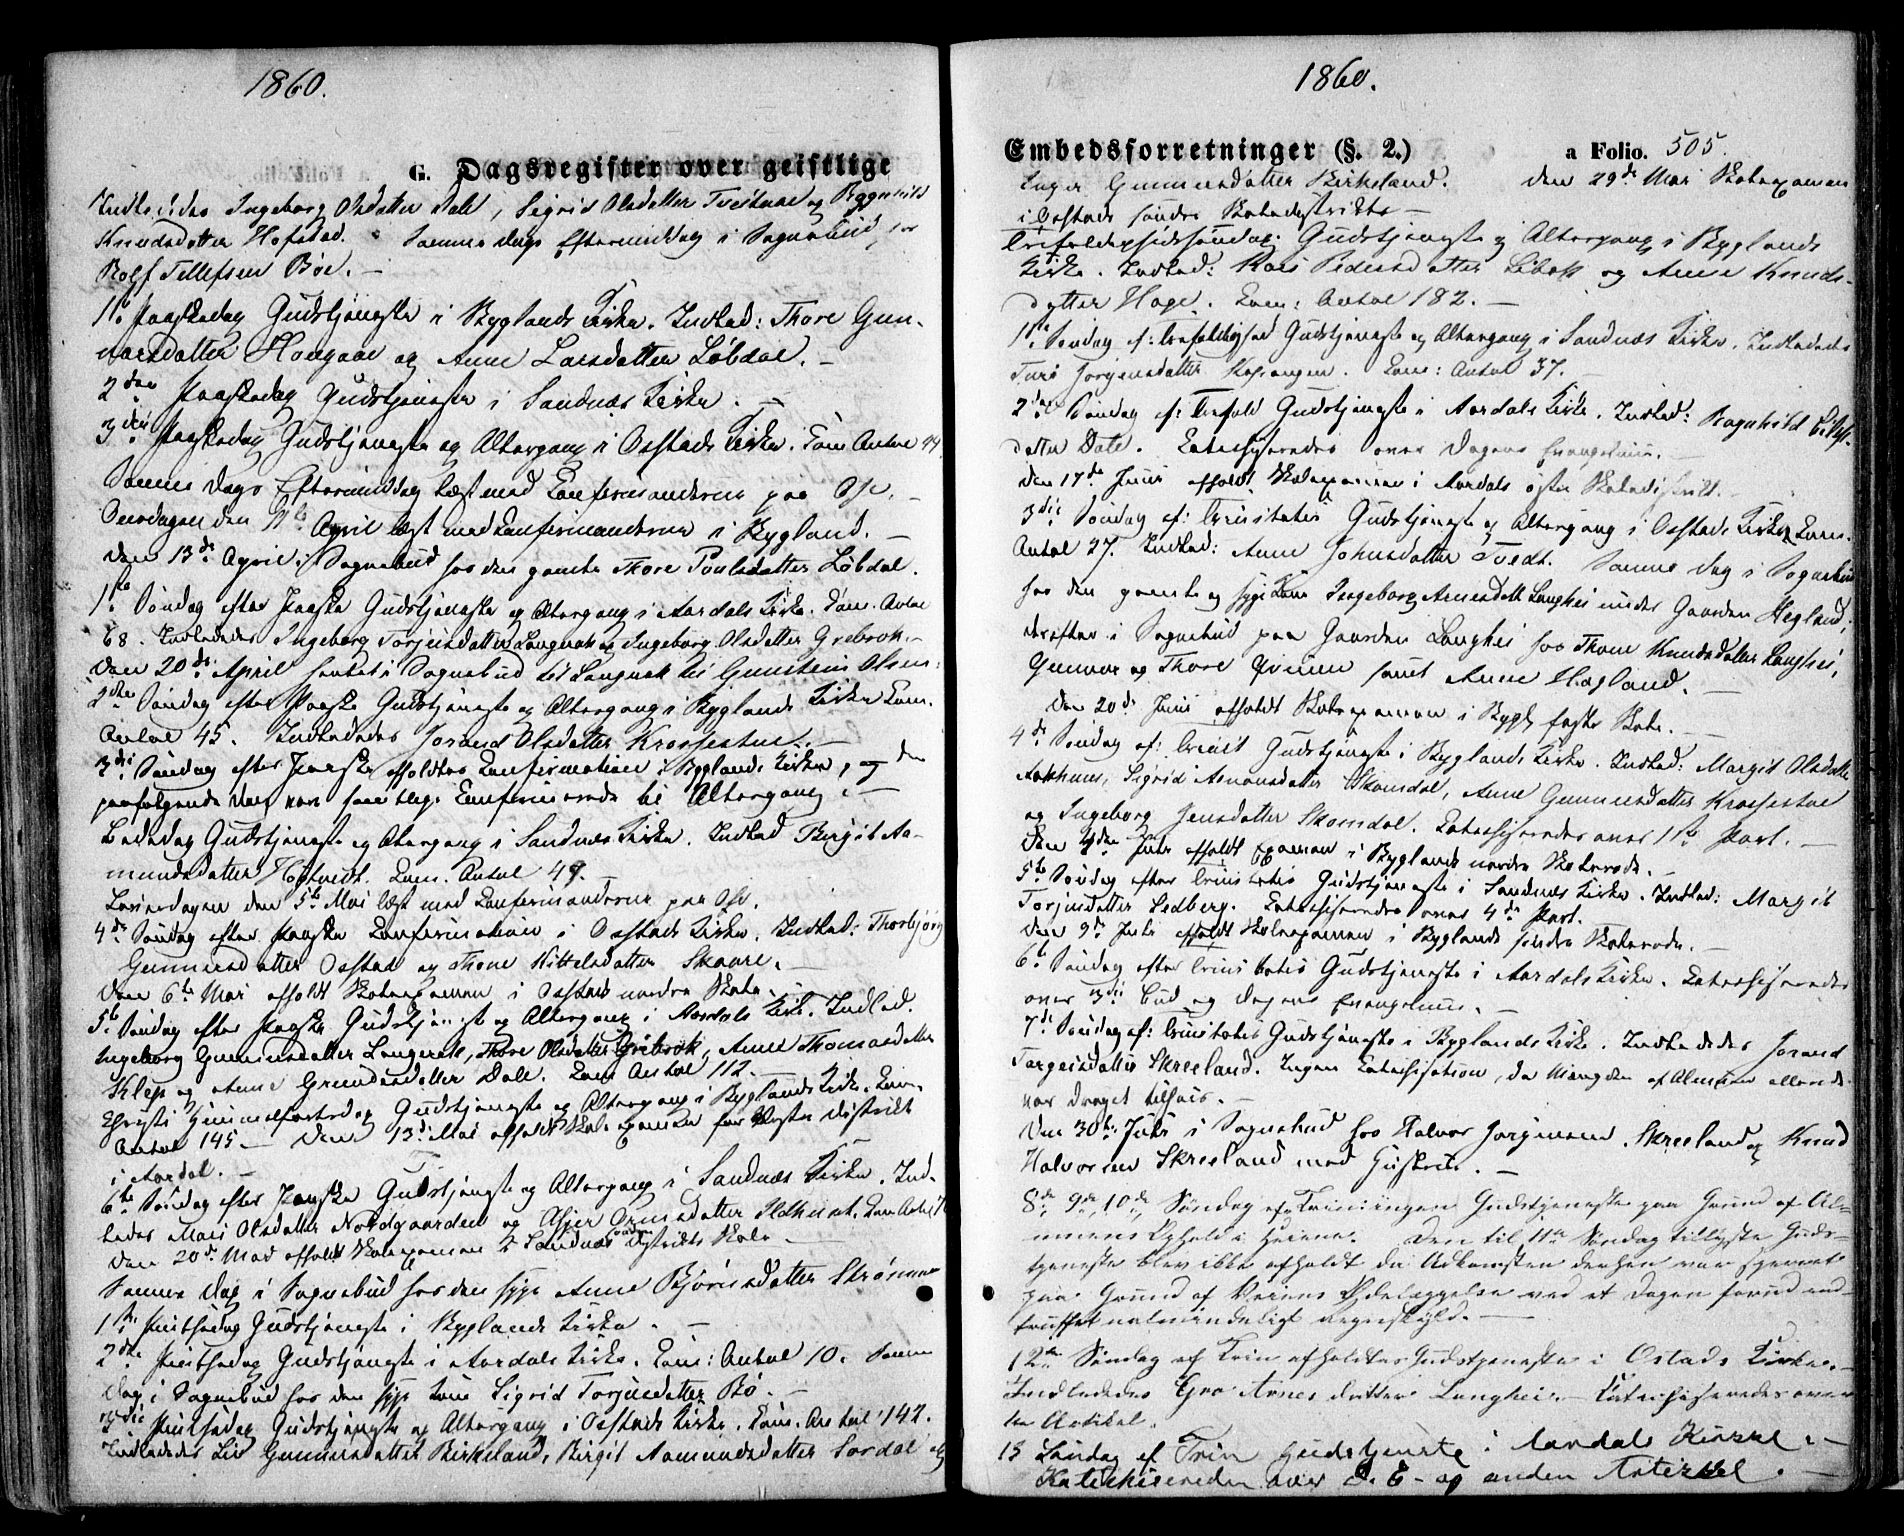 1860.
G. Dagsregister over geistlige
Indlededes Ingeborg Olsdatter Dale, Sigrid Olsdatter Tveitnæs og Ragnhild
Knudsdatter Hofstad. Samme Dags Eftermiddag i Sognebud for
Rolf Tellefsen Bøe. —
1ste Paaskedag Gudstjeneste i Byglands Kirke. Indled: Thore Gun-
narsdatter Homgaae og Anne Larsdatter Løbdal. —
2den Paaskedag Gudstjeneste i Sandnæs Kirke. —
3die Paaskedag Gudstjeneste og Altergang i Osstads Kirke. Com. Antal 44.
Samme Dags Eftermiddag læst med Confirmanderne paa Ose. —
Onsdagen den 11te April læst med Confirmanderne i Bygland. —
Den 13de April i Sognebud hos den gamle Thore Poulsdatter Løbdal.
1ste Søndag efter Paaske Gudstjeneste og Altergang i Aardals Kirke. Com. Antal
68. Indlededes Ingeborg Torjusdatter Langerak og Ingeborg Olsdatter Grebrok. —
Den 20de April hentet i Sognebud til Langerak til Gunstein Olsen.
2den Søndag efter Paaske Gudstjeneste og Altergang i Byglands Kirke Com.
Antal 45. Indlededes Jorand Olsdatter Krossestue. —
3die Søndag efter Paaske afholdtes Confirmation i Byglands Kirke, og den
paafølgende Dag var samtlige Confirmerede til Altergang. —
Bededag Gudstjeneste og Altergang i Sandnæs Kirke. Indled Birgit Aa-
mundsdatter Hoftvedt. Com. Antal 49. —
Løverdagen den 5te Mai læst med Confirmanderne paa Ose.
4de Søndag efter Paaske Confirmation i Osstads Kirke. Indled: Thorbjørg
Gunnersdatter Osstad og Thone Kittelsdatter Skaare. —
Den 6te Mai afholdt Skoleexamen i Osstads nordre Skole. —
5te Søndag efter Paaske Gudstjeneste og Altergang i Aardals Kirke. Indled.
Ingeborg Gunnersdatter Langerak, Thore Olsdatter Grebrok, Anne Thomasdatter
Klep og Anne Gundersdatter Dale. Com Antal 112. —
Christi Himmelfartsdag Gudstjeneste og Altergang i Byglands Kirke. Com.
Antal 145. — Den 13de Mai afholdt Skoleexamen for Vestre Distrikt
i Aardal. —
6te Søndag efter Paaske Gudstjeneste og Altergang i Sandnæs Kirke. Ind-
lededes Mari Olsdatter Nordgaarden og Asjer Ormsdatter Ildhuset. Com Antal
Den 20de Mai afholdt Skoleexamen i Sandnæs søndre Distrikts Skole —
Samme Dag i Sognebud hos den syge Anne Bjørnsdatter Strømme
1ste Pintsedag Gudstjeneste i Byglands Kirke. —
2den Pintsedag Gudstjeneste i Aardals Kirke. Com: Antal 10. Samme
Dag i Sognebud hos den syge Kone Sigrid Torjusdatter Bø. —
3die Pintsedag Gudstjeneste og Altergang i Osstads Kirke. Com. Antal 142.
Indlededes Liv Gunnersdatter Birkeland, Birgit Aamundsdatter Sordal og
1860.
Embedsforretninger (§. 2.) a Folio. 505.
Inger Gunnersdatter Birkeland. Den 29de Mai Skoleexamen
i Osstads søndre Skoledistrikt. —
Trefoldighedssøndag Gudstjeneste og Altergang i Byglands
Kirke. Indled: Mari Pedersdatter Libok og Anne Knuds-
datter Hage. Com: Antal 182. —
1ste Søndag ef: Trefoldighed Gudstjeneste og Altergang i Sandnæs Kirke. Indlededes
Turi Jørgensdatter Kosvangen. Com: Antal 37. —
2den Søndag ef: Trefold Gudstjeneste i Aardals Kirke. Indled: Ragnhild
datter Dale. Catechiseredes over Dagens Evangelium. —
Den 17de Juni afholdt Skoleexamen i Aardals østre Skoledistrikt. —
3die Søndag ef: Trinitatis Gudstjeneste og Altergang i Osstads Kirke, Com.
Antal 27. Indled: Anne Johnsdatter Tvedt. Samme Dag i Sognebud
hos den gamle og syge Kone Ingeborg Arnesdatt Langhei under Gaarden Hegland;
derefter i Sognebud paa Gaarden Langhei hos Thone Knudsdatter Langhei,
Gunnar og Thore Qvinnen samt Anne Hegland. —
Den 20de Juni afholdt Skoleexamen i Bygl. faste Skole. —
4de Søndag ef: Trinit Gudstjeneste i Byglands Kirke. Indled: Margit Olsdatter
Aakhuus, Sigrid Aanonsdatter Skomdal, Anne Gunnersdatter Krossestue
og Ingeborg Jensdatter Skomdal. Catechiseredes over 1ste Part. —
Den 4de Juli afholdt Examen i Byglands nordre Skolerode. —
5te Søndag efter Trinitatis Gudstjeneste i Sandnæs Kirke. Indled: Margit
Torjusdatter Lidberg. Catechiseredes over 4de Part.
Den 9de Juli afholdt Skoleexamen i Byglands søndre Skolerode. —
6te Søndag efter Trinitatis Gudstjeneste i Aardals Kirke. Catechiseredes
over 3die Bud og Dagens Evangelium. —
7de Søndag ef: Trinitatis Gudstjeneste i Byglands Kirke. Indlededes Jorand
Targeisdatter Skreeland. Ingen Catechisation, da Mængden af Almuen allerede
var draget tilheis. —
Den 30te Juli i Sognebud hos Halvor Jørgensen Skreeland og Knud
Halvorsen Skreeland med Hustrue. —
8de, 9de, 10de Søndag ef Trin ingen Gudstjeneste paa Grund af Al-
muens Ophold i Heiene. Den til 11te Søndag tillyste Guds-
tjeneste blev ikke afholdt da Adkomsten derhen var sperret
paa Grund af Veiens Ødelæggelse ved et Dagen forud ind-
truffet ualmindeligt Regnskyld. —
12te Søndag ef Trin afholdtes Gudstjeneste i Ostads Kirke. —
Indlededes Gro Arnesdatter Langhei. — Catechiseredes over
Artikel.
13 Søndag ef Trin Gudstjeneste i Aardals Kirke. —
Katechiseredes over og anden Artikel. —